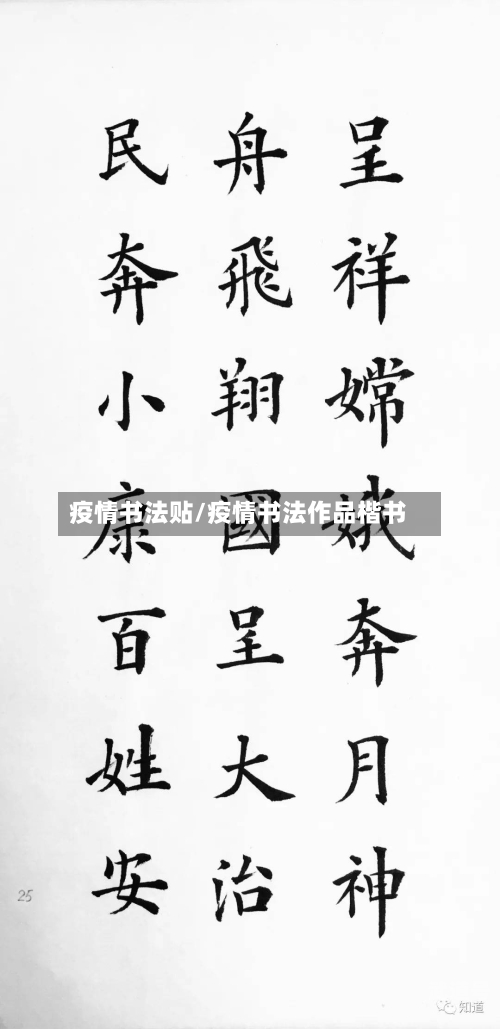 呈祥嫦娥奔月神
舟飛翔國呈大治
民奔小康百姓安
疫情书法贴/疫情书法作品楷书
25
知道